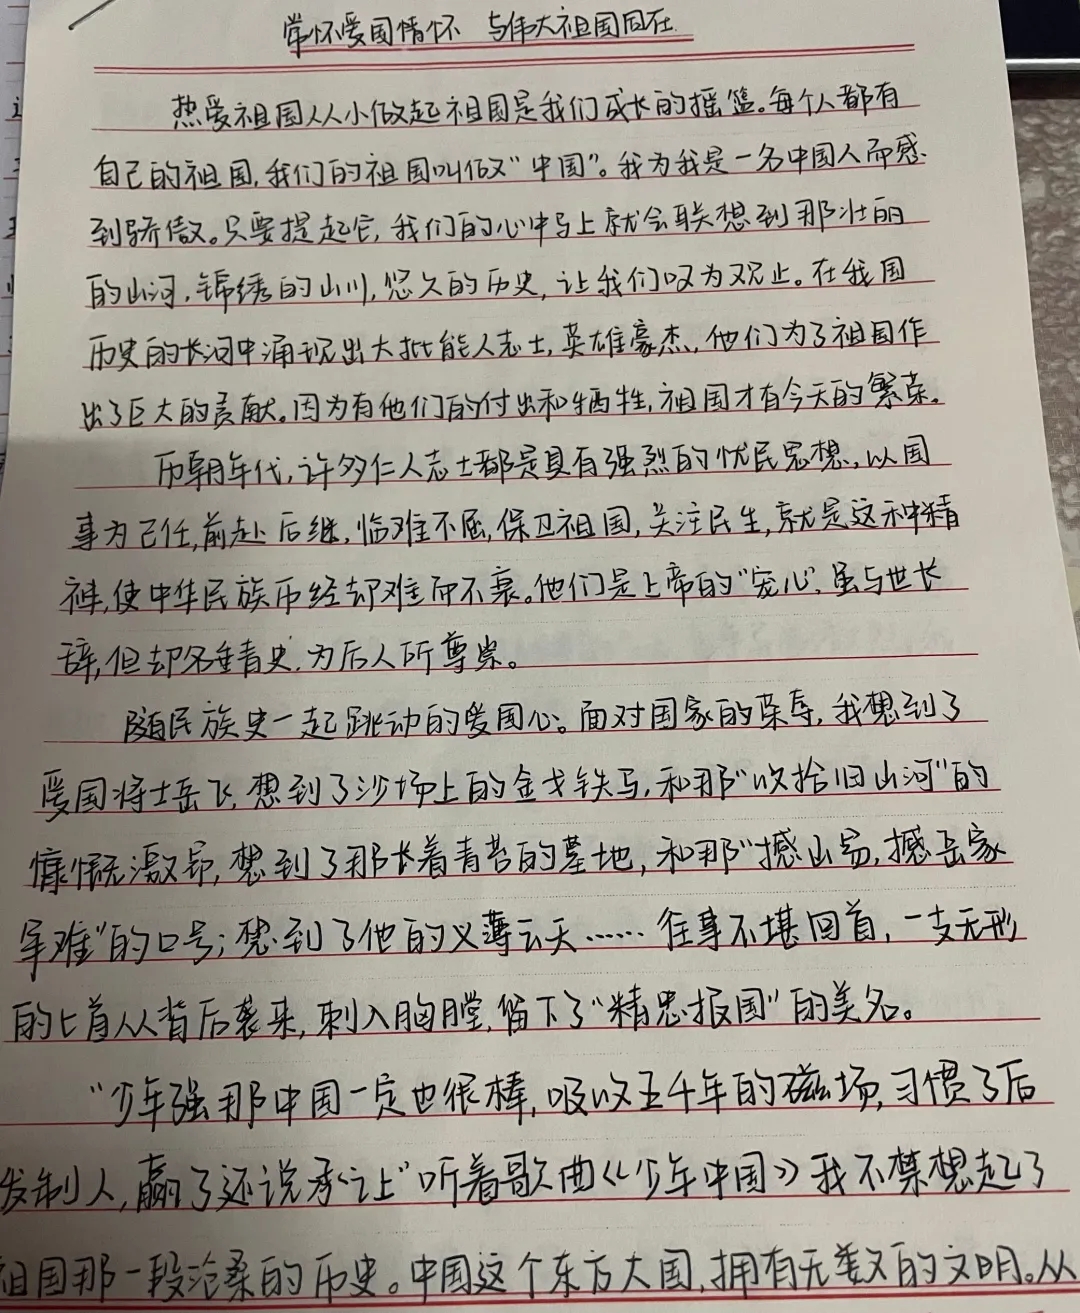 常怀爱国情怀 与伟大祖国同在
热爱祖国从小做起祖国是我们成长的摇篮。每个人都有
自己的祖国,我们的祖国叫做“中国”。我为我是一名中国人而感
到骄傲。只要提起它,我们的心中马上就会联想到那壮丽
的山河,锦绣的山川,悠久的历史,让我们叹为观止。在我国
历史的长河中涌现出大批能人志士,英雄豪杰,他们为了祖国作
出了巨大的贡献。因为有他们的付出和牺牲,祖国才有今天的繁荣。
历朝年代,许多仁人志士都是具有强烈的忧民思想,以国
事为己任,前赴后继,临难不屈,保卫祖国,关注民生,就是这种精
神,使中华民族历经却难而不衰。他们是上帝的“宠儿”,虽与世长
辞,但却名垂青史,为后人所尊崇。
随民族史一起跳动的爱国心。面对国家的荣辱,我想到了
爱国将士岳飞,想到了沙场上的金戈铁马,和那“收拾旧山河”的
慷慨激昂,想到了那长着青苔的墓地,和那“撼山易,撼岳家
军难”的口号;想到了他的义薄云天……往事不堪回首,一支无形
的匕首从背后袭来,刺入胸膛,留下了“精忠报国”的美名。
“少年强那中国一定也很棒,吸收五千年的磁场,习惯了后
发制人,赢了还说承让”听着歌曲《少年中国》我不禁想起了
祖国那一段沧桑的历史。中国这个东方大国,拥有无数的文明。从